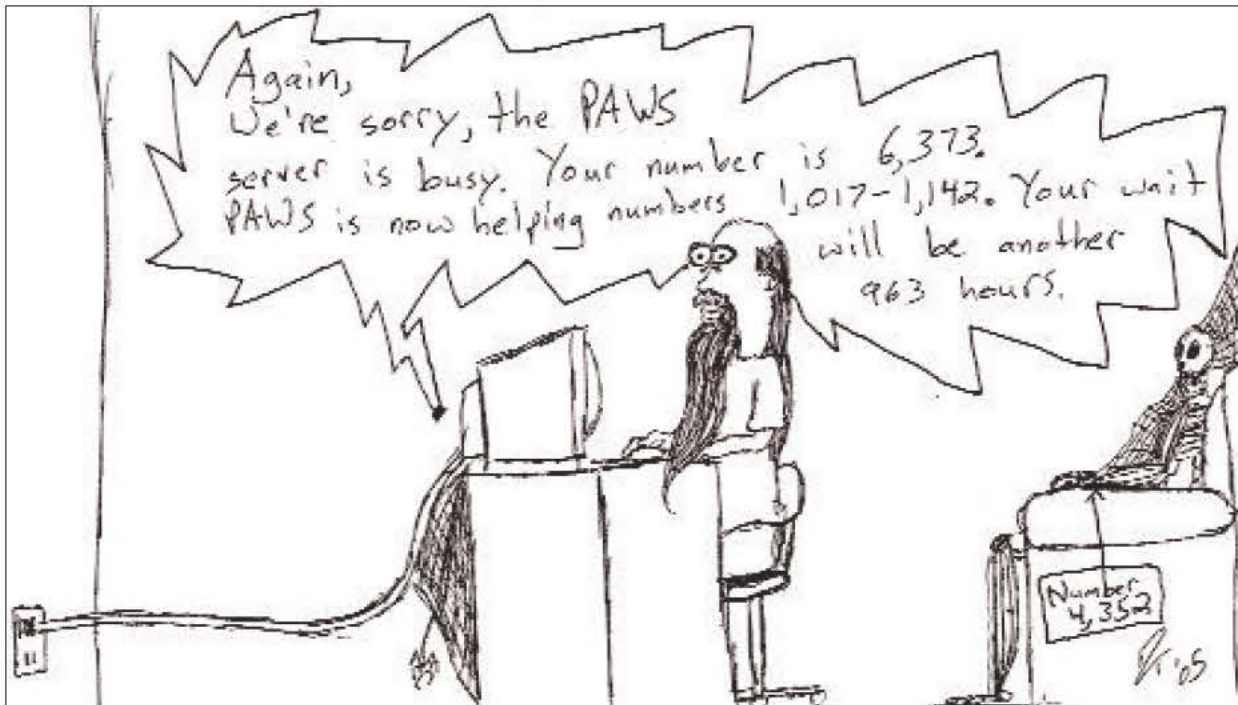 Again,
We're sorry, the PAWS
server is busy. Your number is 6,373.
PAWS is now helping numbers 1,017-1,142. Your wait
will be another
963 hours.
Number
4,352
'05